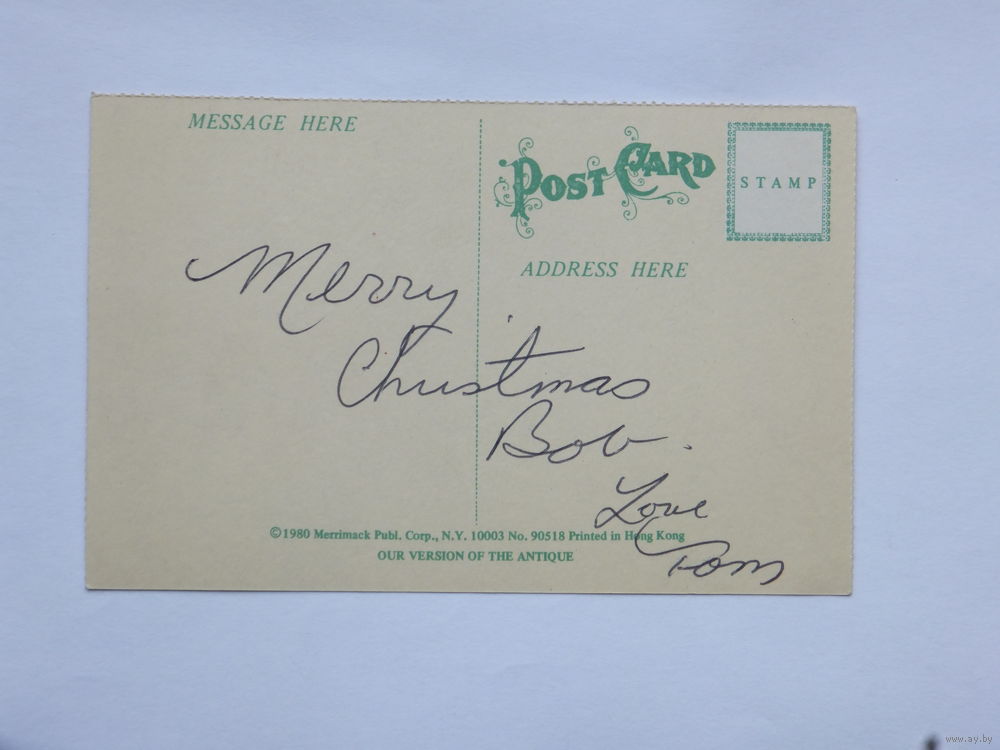 MESSAGE HERE
POST CARD
STAMP
ADDRESS HERE
Merry
Christmas
Bob.
Love
Tom
©1980 Merrimack Publ. Corp., N.Y. 10003 No. 90518 Printed in Hong Kong
OUR VERSION OF THE ANTIQUE
www.ay.by